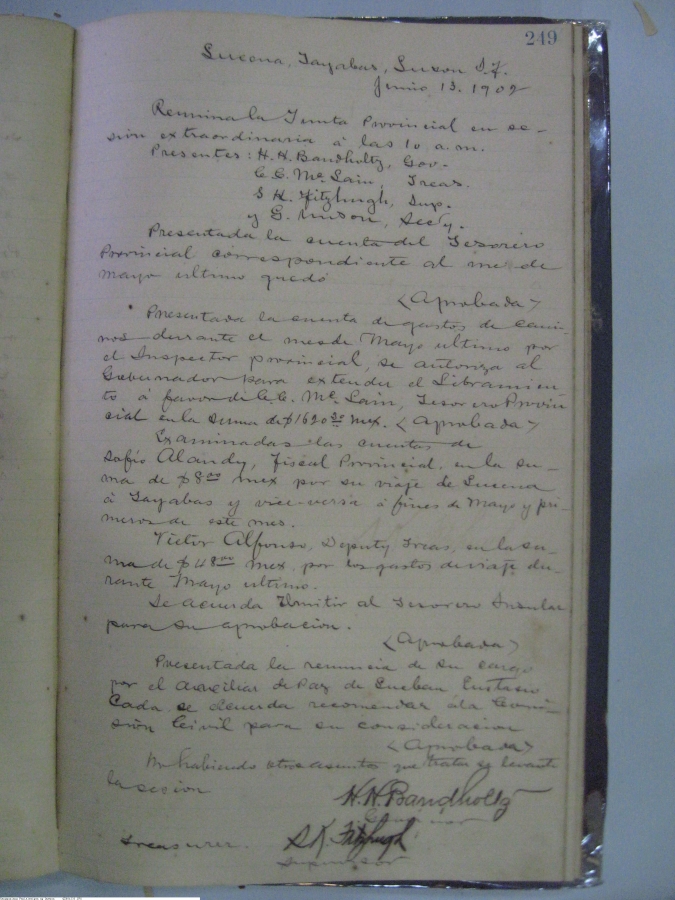 249
Lucena, Tayabas, Luzon I.F.
Junio 13, 1902
Reunina la Junta Provincial en se-
sion extraordinaria á las 10 a.m.
Presentes: H.H. Bandholtz, Gov.
C.C. Mc Lain, Treas.
S K. Fitzhugh, Sup.
y G. Unson, Secy.
Presentada la cuenta del Tesorero
Provincial correspondiente al mes de
Mayo ultimo quedó
<Aprobada>
Presentada la cuenta de gastos de Cami-
nos durante el mes de Mayo ultimo por
el Inspector provincial, se autoriza al
Gobernador para extender el Libramien-
to á favor de C.C. Mc Lain, Tesorero Provin
cial en la suma de $1620 Mex. <Aprobada>
Examinadas las cuentas de
Sofio Alandy, Fiscal Provincial, en la su-
ma de $8.00 Mex por su viaje de Lucena
á Tayabas y vice-versa á fines de Mayo y pri-
meros de este mes.
Victor Alfonso, Deputy Treas, en la su-
ma de $48.00 Mex. por los gastos de viaje du-
rante Mayo ultimo.
Se acuerda Emitir al Tesorero Insular
para su aprobacion.
<Aprobada>
Presentada la renuncia de su cargo
por el Auxiliar de Paz de Eustasio
Cada se acuerda recomendar á la Comi-
sión Civil para su consideracion
<Aprobada>
No habiendo otros asuntos que tratar se levantó
la sesion
H.H. Bandholtz
Governor
S K. Fitzhugh
Treasurer.
Supervisor